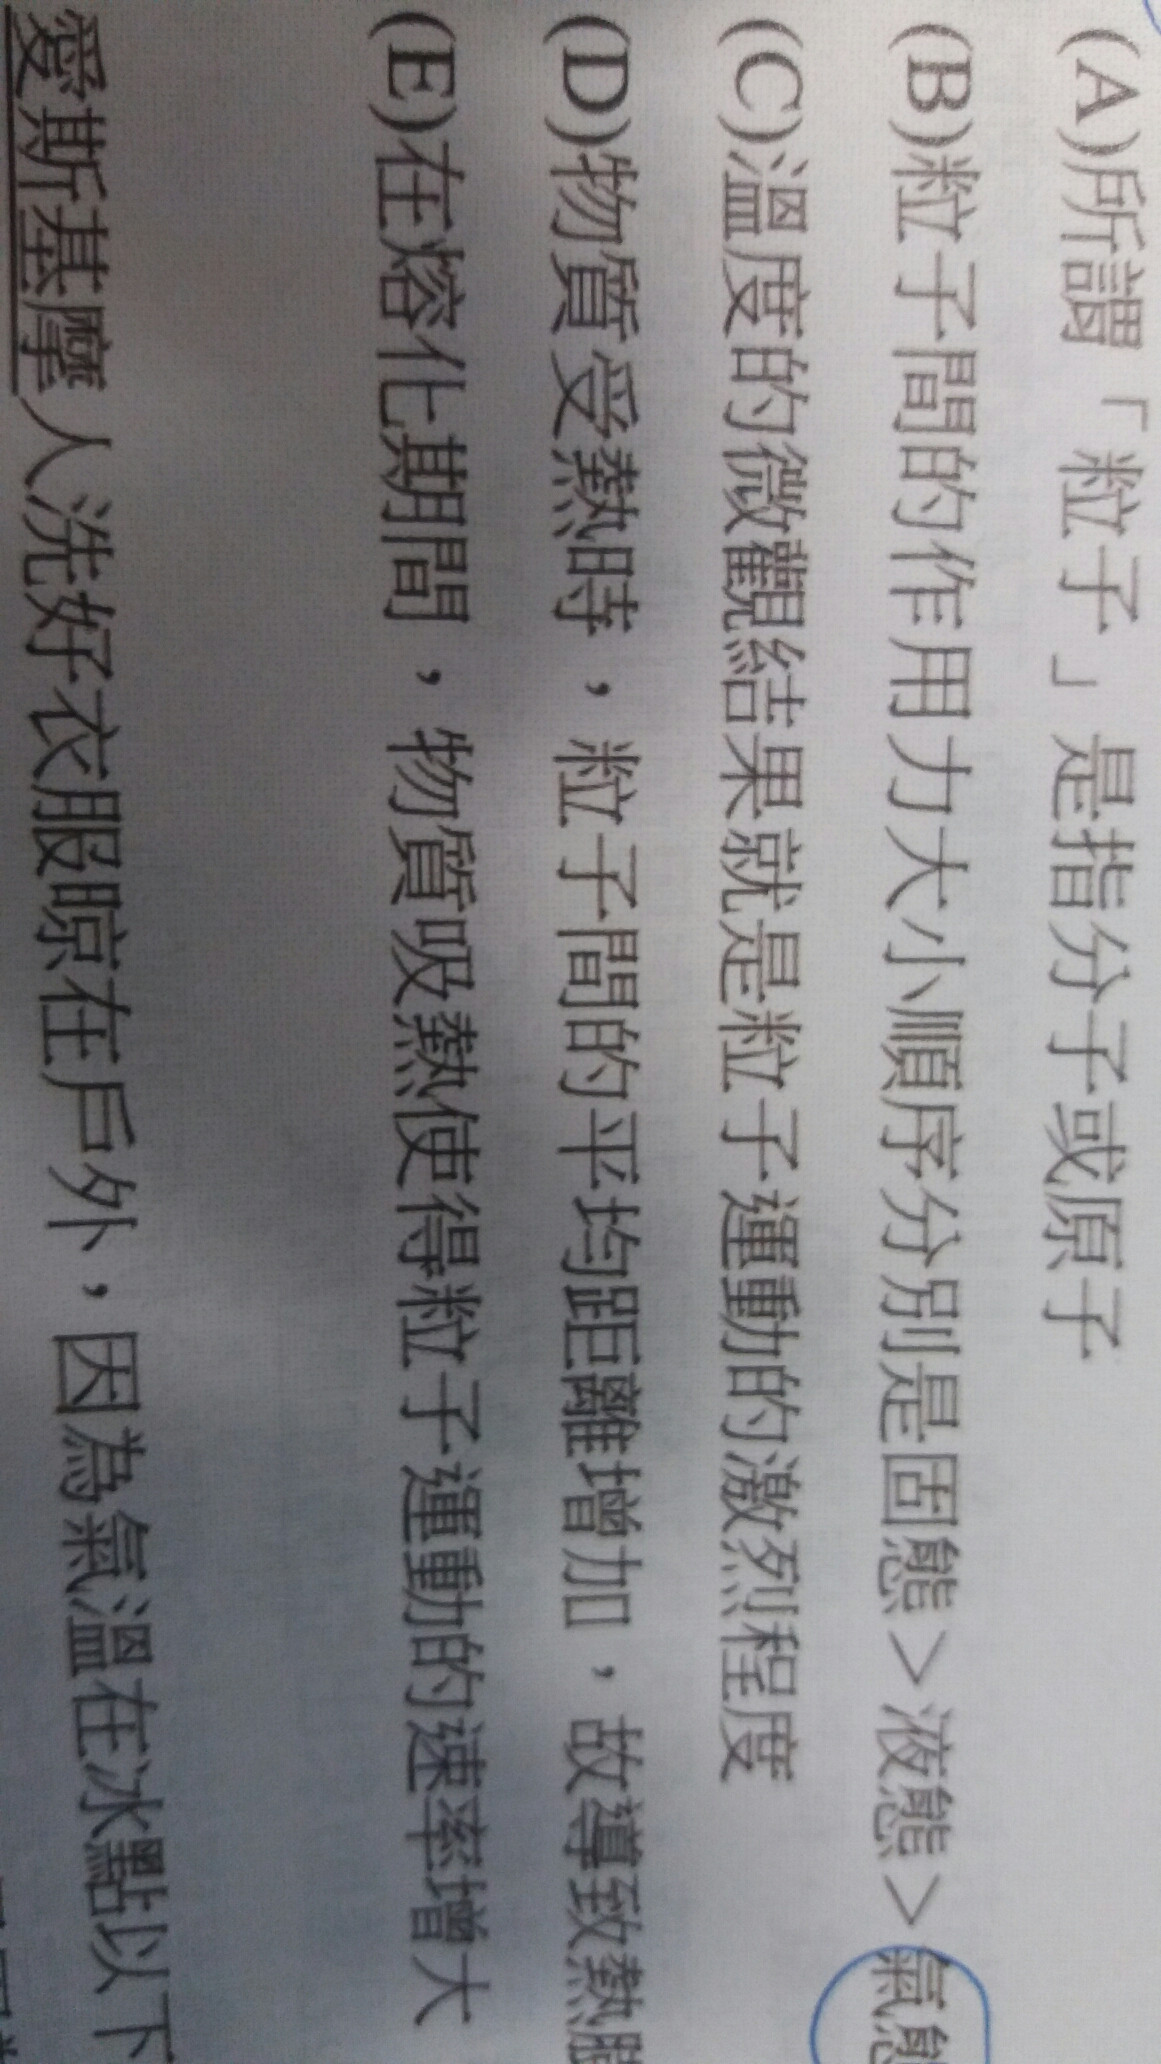 (A)所謂「粒子」是指分子或原子
(B)粒子間的作用力大小順序分別是固態＞液態＞氣態
(C)溫度的微觀結果就是粒子運動的激烈程度
(D)物質受熱時，粒子間的平均距離增加，故導致熱脹
(E)在熔化期間，物質吸熱使得粒子運動的速率增大
愛斯基摩人洗好衣服晾在戶外，因為氣溫在冰點以下